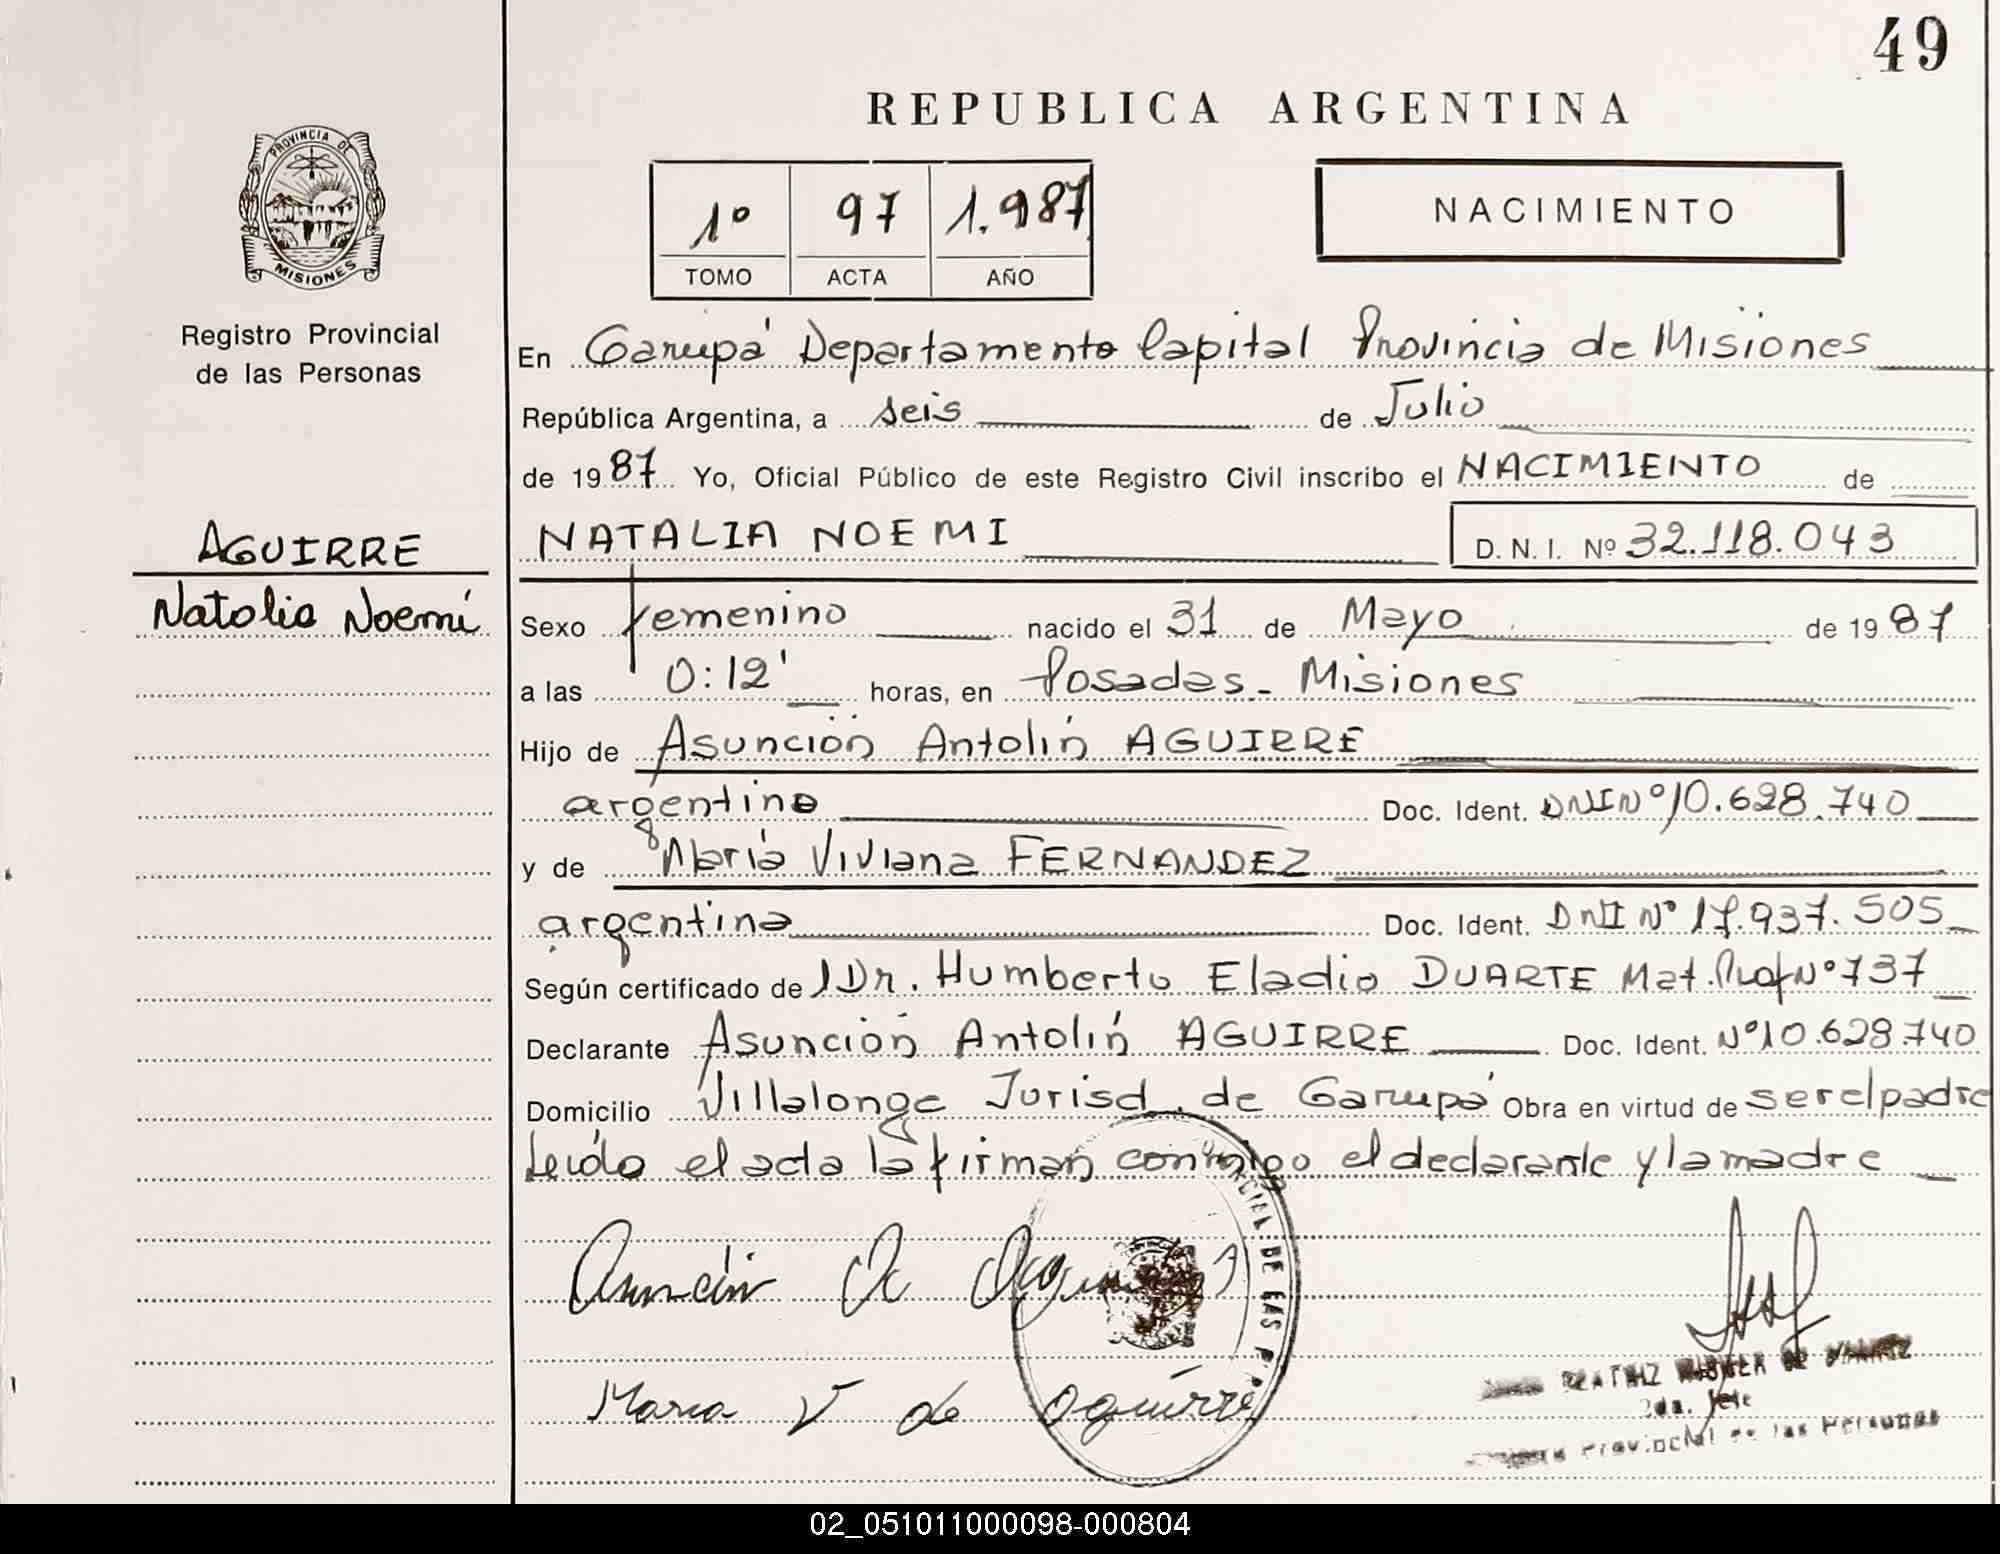 49
REPUBLICA ARGENTINA
PROVINCIA DE
MISIONES
Registro Provincial
de las Personas
1º 97 1.987
TOMO ACTA AÑO
NACIMIENTO
En Garupá Departamento Capital Provincia de Misiones
República Argentina, a seis de Julio
de 1987 Yo, Oficial Público de este Registro Civil inscribo el NACIMIENTO de
AGUIRRE
Natalia Noemí
NATALIA NOEMI D. N. I. Nº 32.118.043
Sexo femenino nacido el 31 de Mayo de 1987
a las 0:12' horas, en Posadas - Misiones
Hijo de Asunción Antolín AGUIRRE
argentino Doc. Ident. DNI Nº 10.628.740
y de María Viviana FERNANDEZ
argentina Doc. Ident. DNI Nº 17.937.505
Según certificado de Dr. Humberto Eladio DUARTE Mat. Prof Nº 737
Declarante Asunción Antolín AGUIRRE Doc. Ident. Nº 10.628.740
Domicilio Villalonga Jurisd. de Garupá Obra en virtud de ser el padre
Leída el acta la firman conmigo el declarante y la madre
Asunción A Aguirre
DE LAS P
Maria V de Aguirre
BEATRIZ DE
2da. Jefe
Provincial de las Personas
02_051011000098-000804